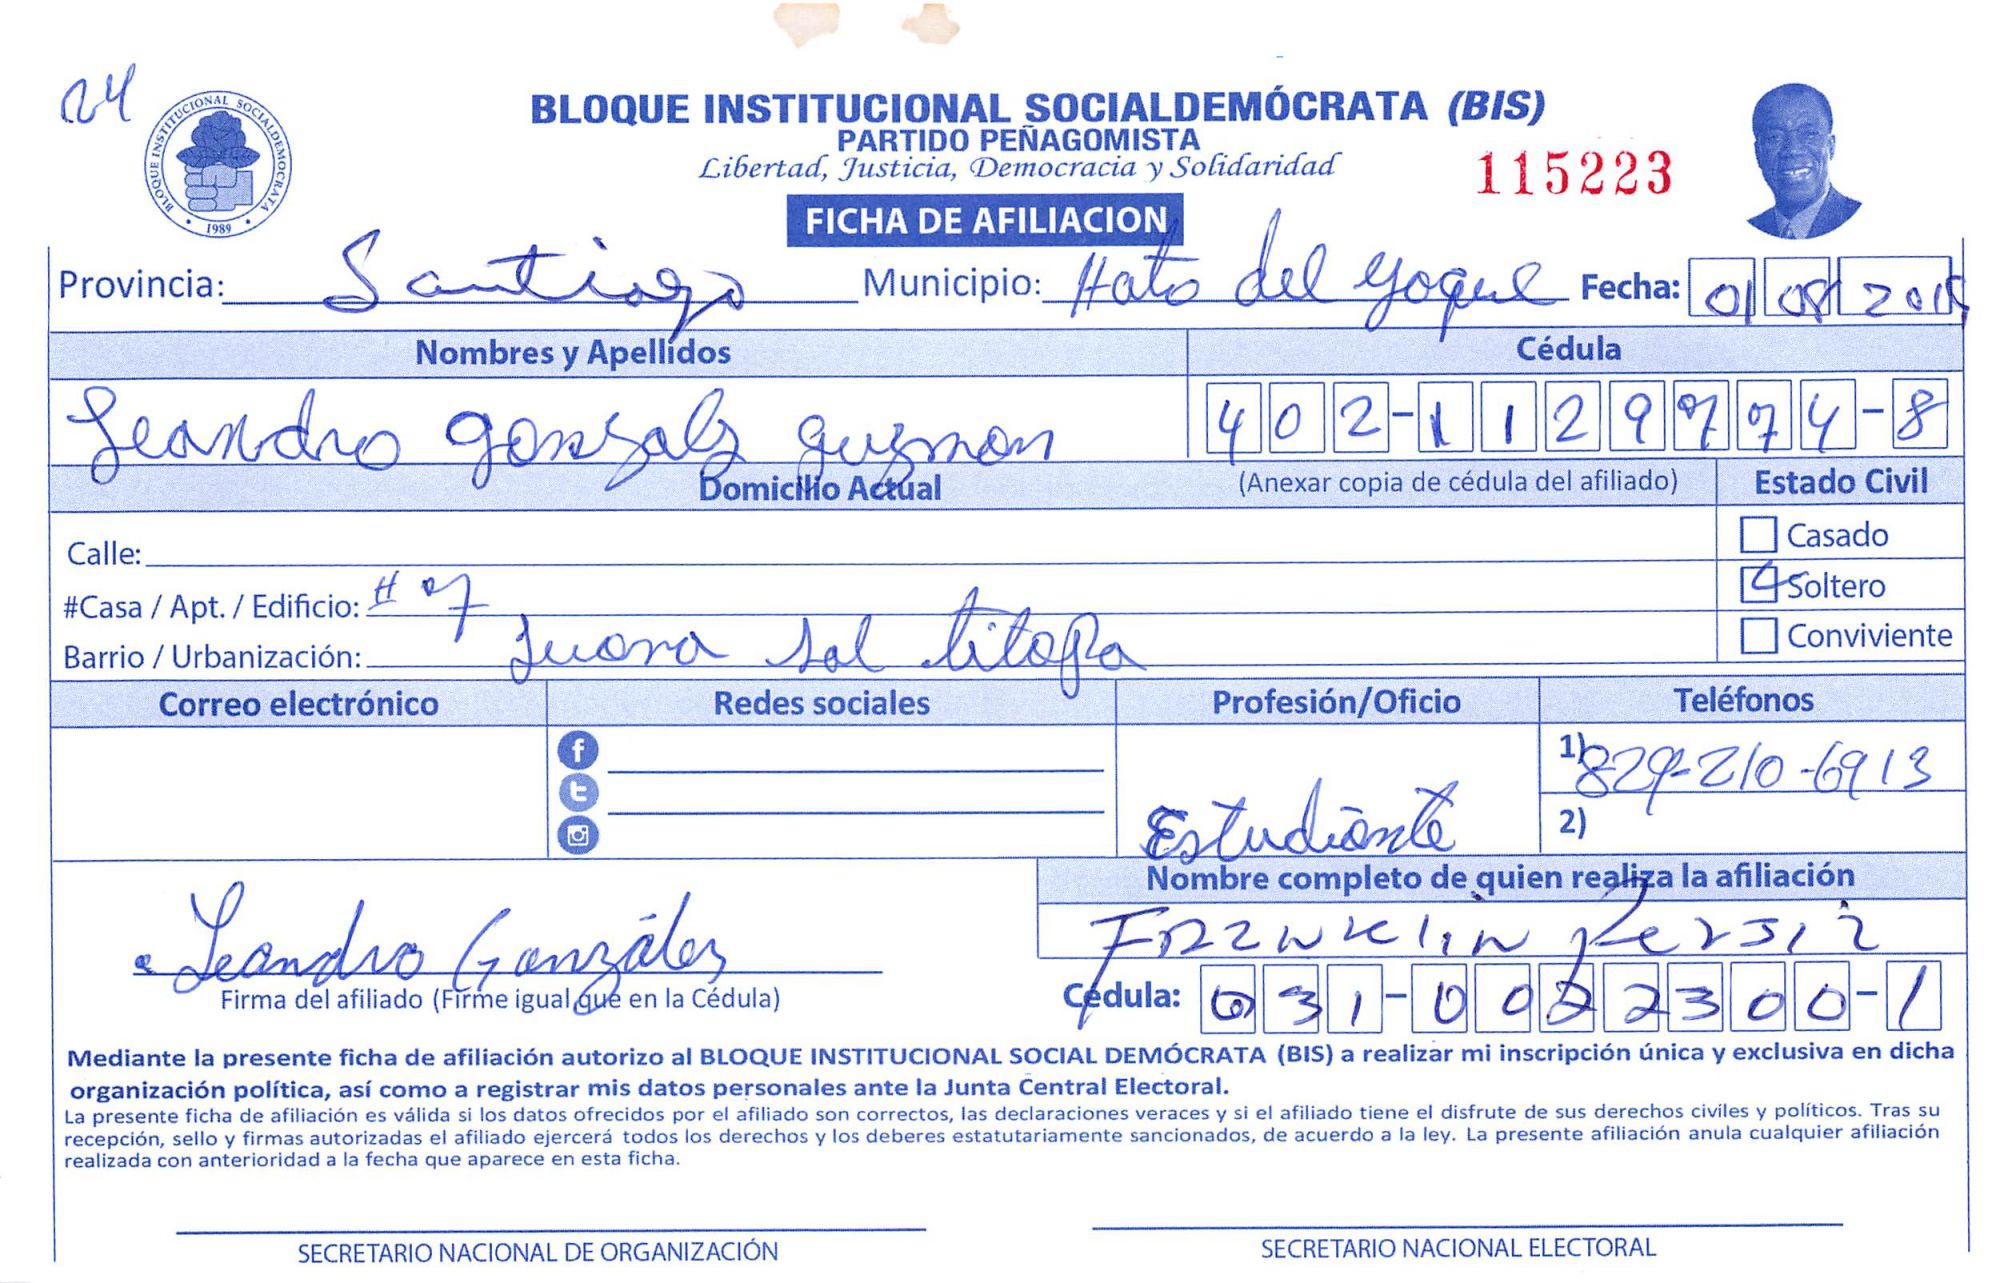 24
BLOQUE INSTITUCIONAL SOCIALDEMOCRATA
1989
BLOQUE INSTITUCIONAL SOCIALDEMÓCRATA (BIS)
PARTIDO PEÑAGOMISTA
Libertad, Justicia, Democracia y Solidaridad
115223
FICHA DE AFILIACION
Provincia: Santiago Municipio: Hato del yaque Fecha: 01 08 201
Nombres y Apellidos Cédula
Leandro gonzalz guzman 402-1129774-8
Domicilio Actual (Anexar copia de cédula del afiliado) Estado Civil
Calle: Casado
#Casa / Apt. / Edificio: # 07 Soltero
Barrio / Urbanización: Juana sal titopa Conviviente
Correo electrónico Redes sociales Profesión/Oficio Teléfonos
1) 829-210-6913
Estudiante 2)
Nombre completo de quien realiza la afiliación
Leandro González Franklin
Firma del afiliado (Firme igual que en la Cédula) Cédula: 031-0022300-1
Mediante la presente ficha de afiliación autorizo al BLOQUE INSTITUCIONAL SOCIAL DEMÓCRATA (BIS) a realizar mi inscripción única y exclusiva en dicha
organización política, así como a registrar mis datos personales ante la Junta Central Electoral.
La presente ficha de afiliación es válida si los datos ofrecidos por el afiliado son correctos, las declaraciones veraces y si el afiliado tiene el disfrute de sus derechos civiles y políticos. Tras su
recepción, sello y firmas autorizadas el afiliado ejercerá todos los derechos y los deberes estatutariamente sancionados, de acuerdo a la ley. La presente afiliación anula cualquier afiliación
realizada con anterioridad a la fecha que aparece en esta ficha.
SECRETARIO NACIONAL DE ORGANIZACIÓN SECRETARIO NACIONAL ELECTORAL